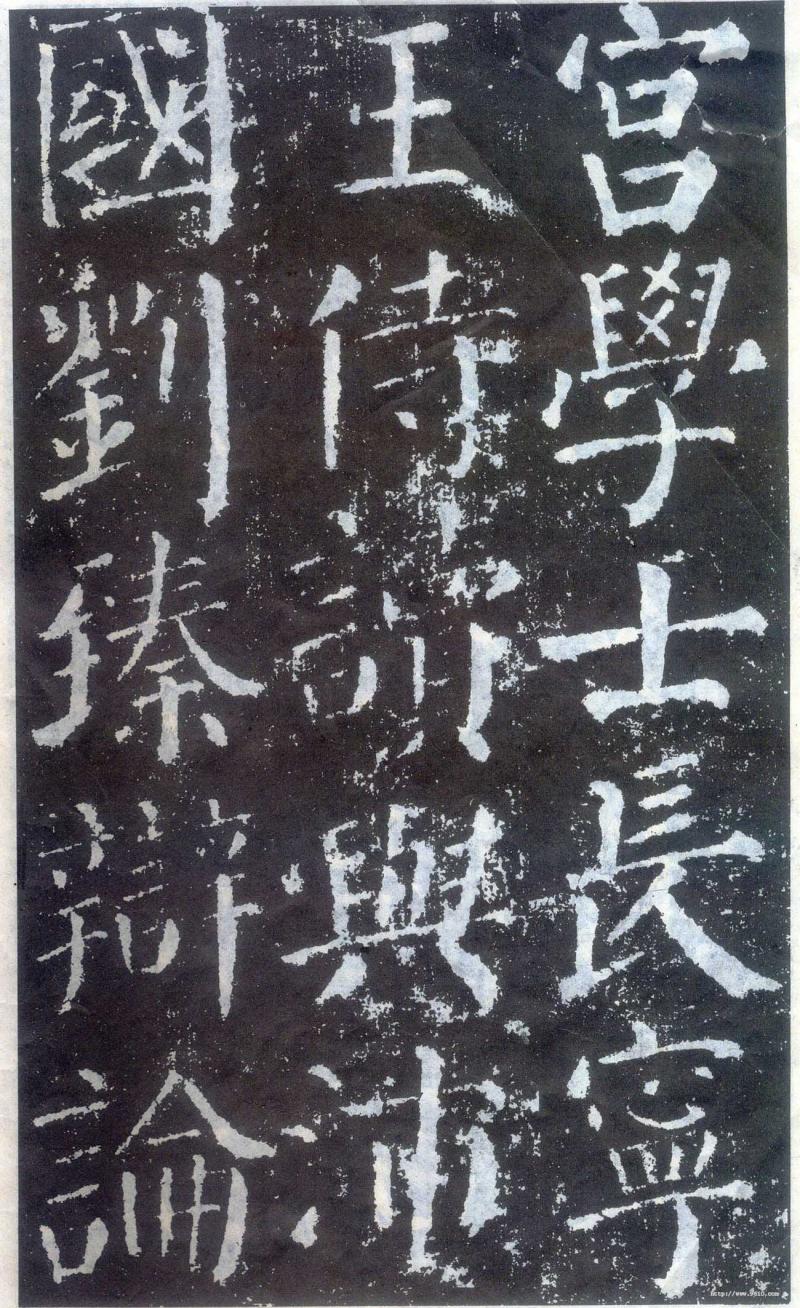 宮學士長寧
王侍讀與沛
國劉臻辯論
http://www.9610.com